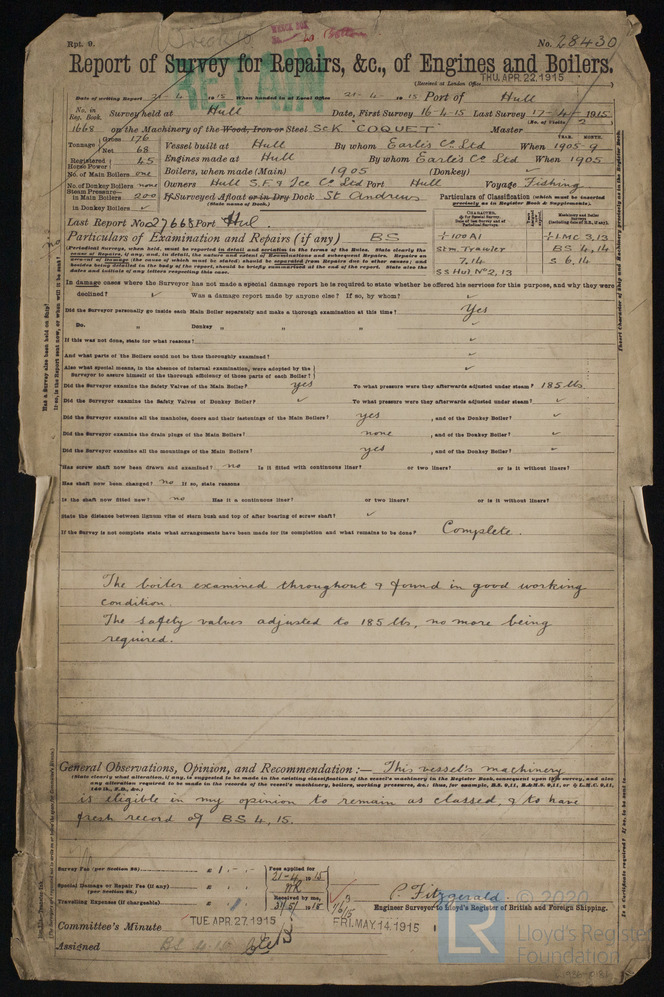 Rpt. 9.
No. 28430
RETAIN
Report of Survey for Repairs, &c., of Engines and Boilers.
(Received at London Office THU. APR. 22. 1915
Date of writing Report 21-4-1915 When handed in at Local Office 21-4-1915 Port of Hull
No. in Reg. Book. Survey held at Hull Date, First Survey 16-4-15 Last Survey 17-4-1915
(No. of Visits 2)
1668 on the Machinery of the Wood, Iron or Steel ScK COQUET Master
Tonnage Gross 176 Net 68 Vessel built at Hull By whom Earle's Co Ltd When 1905-9
Registered Horse Power 45 Engines made at Hull By whom Earle's Co Ltd When 1905
No. of Main Boilers one Boilers, when made (Main) 1905 (Donkey) ✓
No. of Donkey Boilers none Owners Hull S.F. & Ice Co Ltd Port Hull Voyage Fishing
Steam Pressure— in Main Boilers 200 If Surveyed Afloat or in Dry Dock St Andrews
(State name of Dock.)
in Donkey Boilers ✓
Particulars of Classification (which must be inserted precisely as in Register Book & Supplements).
Last Report No. 27668 Port Hul
Particulars of Examination and Repairs (if any) BS
+100A1
Stm Trawler
7,14
SS Hul No2,13
+LMC 3,13
BS 4,14
S 6,14
In damage cases where the Surveyor has not made a special damage report he is required to state whether he offered his services for this purpose, and why they were
declined? ✓ Was a damage report made by anyone else? If so, by whom? ✓
Did the Surveyor personally go inside each Main Boiler separately and make a thorough examination at this time? Yes
Do. " Donkey " " " ✓
If this was not done, state for what reasons? ✓
And what parts of the Boilers could not be thoroughly examined? ✓
Also what special means, in the absence of internal examination, were adopted by the Surveyor to assure himself of the thorough efficiency of those parts of each Boiler? ✓
Did the Surveyor examine the Safety Valves of the Main Boiler? yes To what pressure were they afterwards adjusted under steam? 185 lbs
Did the Surveyor examine the Safety Valves of Donkey Boiler? ✓ To what pressure were they afterwards adjusted under steam? ✓
Did the Surveyor examine all the manholes, doors and their fastenings of the Main Boilers? yes , and of the Donkey Boiler? ✓
Did the Surveyor examine the drain plugs of the Main Boilers? none , and of the Donkey Boiler? ✓
Did the Surveyor examine all the mountings of the Main Boilers? yes , and of the Donkey Boiler? ✓
Has screw shaft now been drawn and examined? no Is it fitted with continuous liner? or two liners? or is it without liners?
Has shaft now been changed? no If so, state reasons
Is the shaft now fitted new? no Has it a continuous liner? or two liners? or is it without liners?
State the distance between lignum vitæ of stern bush and top of after bearing of screw shaft? ✓
If the Survey is not complete state what arrangements have been made for its completion and what remains to be done? Complete.
The boiler examined throughout & found in good working
condition.
The safety valves adjusted to 185 lbs, no more being
required.
General Observations, Opinion, and Recommendation :— This vessel's machinery
is eligible in my opinion to remain as classed, & to have
fresh record of BS 4, 15.
Survey Fee (per Section 28) £ 1 : - : - Fees applied for
21-4-1915
Special Damage or Repair Fee (if any) (per Section 28.) £
Travelling Expenses (if chargeable) £ Received by me,
P. Fitzgerald
Engineer Surveyor to Lloyd's Register of British and Foreign Shipping.
Committee's Minute TUE. APR. 27. 1915 FRI. MAY. 14. 1915
Assigned BS 4.15
© 2020
LR
Lloyd's Register
Foundation